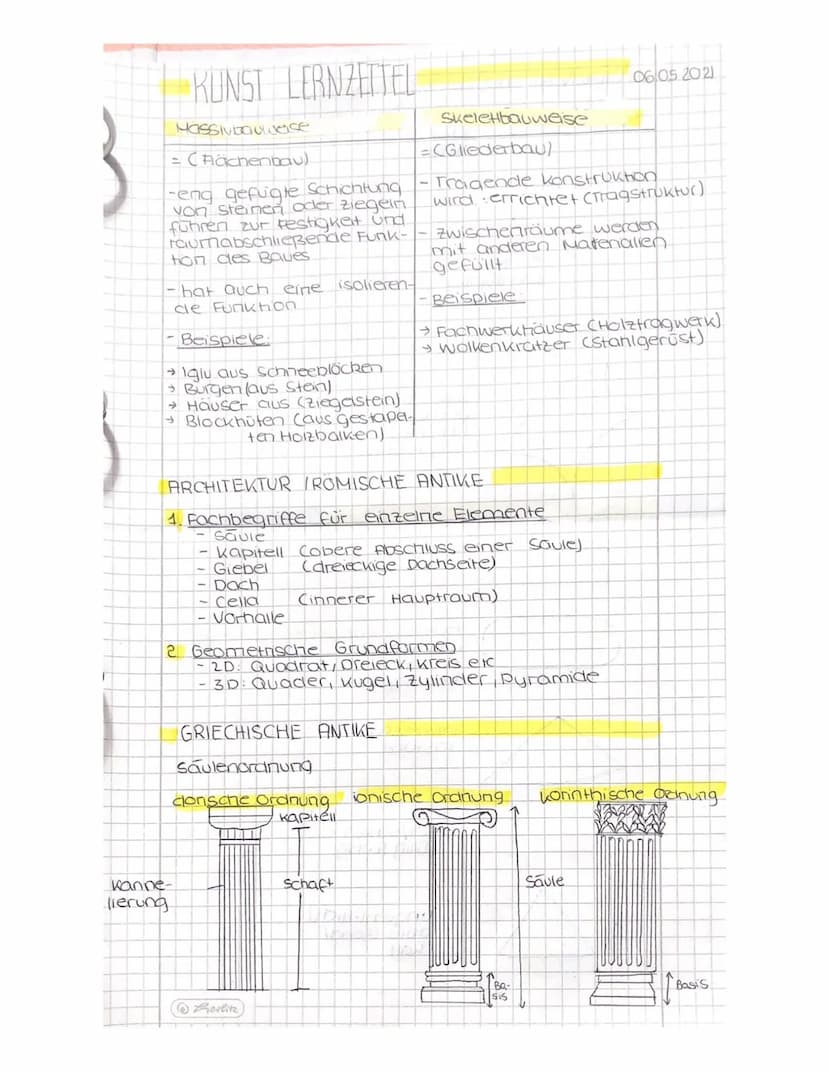 KUNST LERNZETTEL
06.05.2021
Massivbauweise
= (Flächenbau)
- eng gefügte Schichtung
von Steinen oder Ziegeln
führen zur Festigkeit und
raumabschließende Funk-
tion des Baues
- hat auch eine isolieren-
de Funktion
- Beispiele:
→ Iglu aus Schneeblöcken
→ Burgen (aus Stein)
→ Häuser aus (Ziegelstein)
→ Blockhüten (aus gestapel-
ten Holzbalken)
Skelettbauweise
= (Gliederbau)
- Tragende Konstruktion
wird errichtet (Tragstruktur)
- Zwischenräume werden
mit anderen Materialien
gefüllt
- Beispiele:
→ Fachwerkhäuser (Holztragwerk)
→ Wolkenkratzer (Stahlgerüst)
ARCHITEKTUR / RÖMISCHE ANTIKE
1. Fachbegriffe für einzelne Elemente
- Säule
- Kapitell (obere Abschluss einer Säule)
- Giebel (dreieckige Dachseite)
- Dach
- Cella (innerer Hauptraum)
- Vorhalle
2 Geometrische Grundformen
- 2D: Quadrat, Dreieck, Kreis etc
- 3D: Quader, Kugel, Zylinder, Pyramide
GRIECHISCHE ANTIKE
Säulenordnung
dorische Ordnung ionische Ordnung korinthische Ordnung
Kapitell
Kanne-
lierung
Schaft
Säule
Ba-
sis
Basis